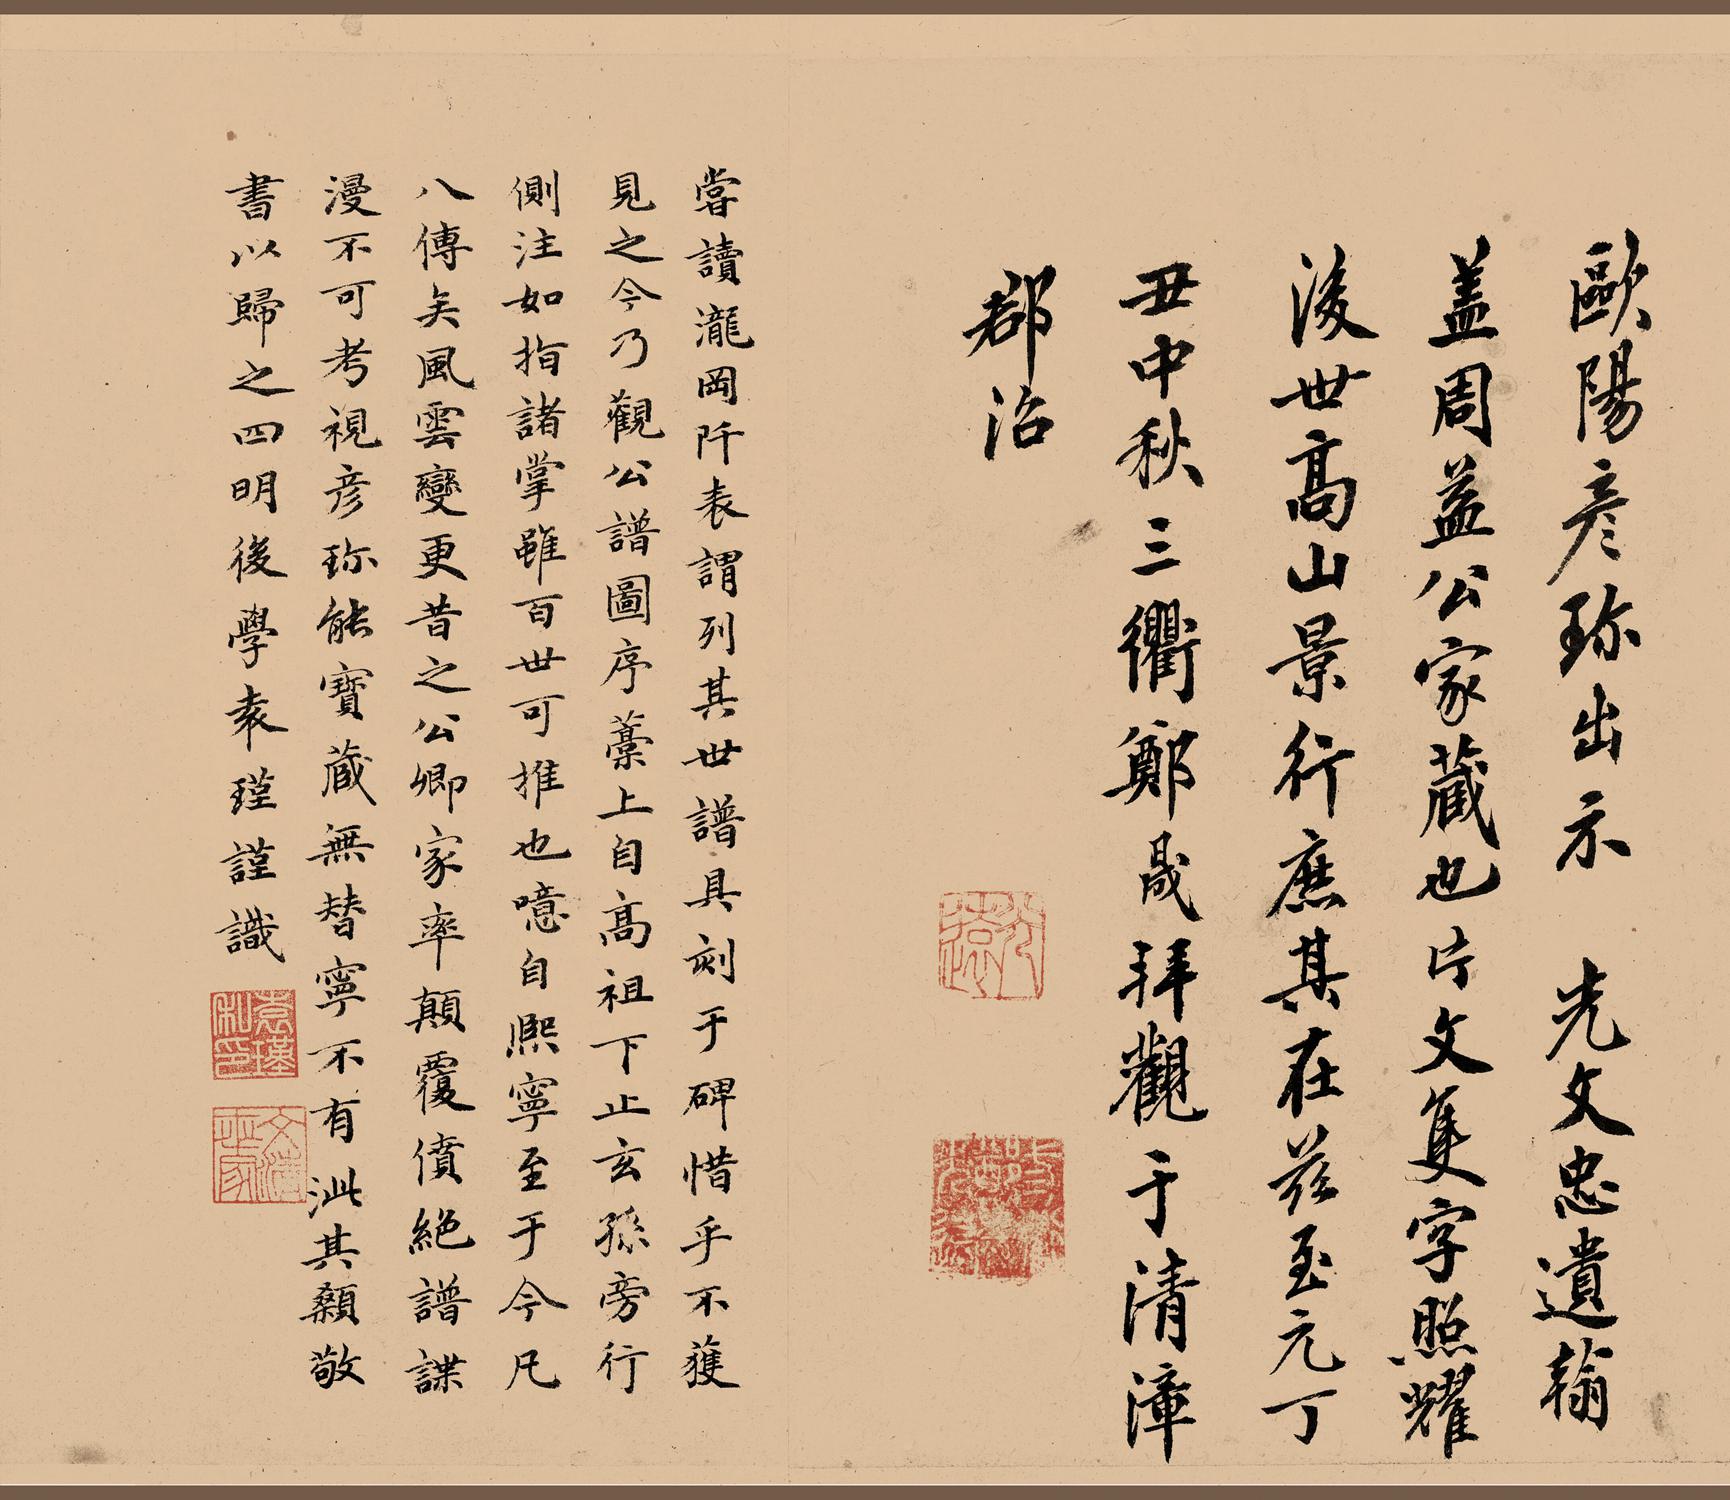 歐陽彦珎出示　光文忠遺翰
盖周益公家藏也片文隻字照耀
後世高山景行庶其在兹至元丁
丑中秋三衢鄭晟拜觀于清漳
郡治
嘗讀瀧岡阡表謂列其世譜具刻于碑惜乎不獲
見之今乃觀公譜圖序藁上自高祖下止玄孫旁行
側注如指諸掌雖百世可推也噫自熈寧至于今凡
八傳矣風雲變更昔之公卿家率顛覆僨絶譜諜
漫不可考視彦珎能寶藏無替寧不有泚其顙敬
書以歸之四明後學袁瑾謹識
袁瑾私印